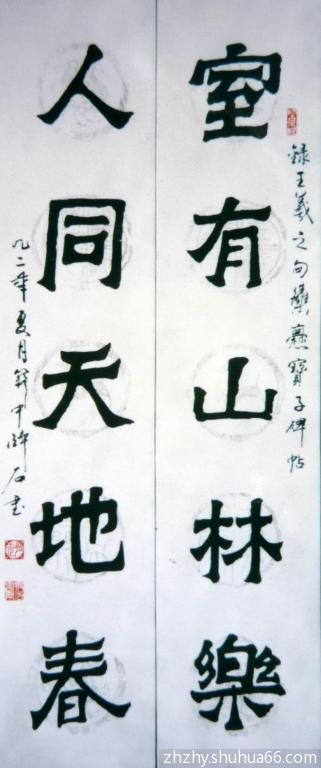 室有山林樂
錄王羲之句集爨寶子碑帖
人同天地春
九二年夏月
石書
zhzhy.shuhua66.com